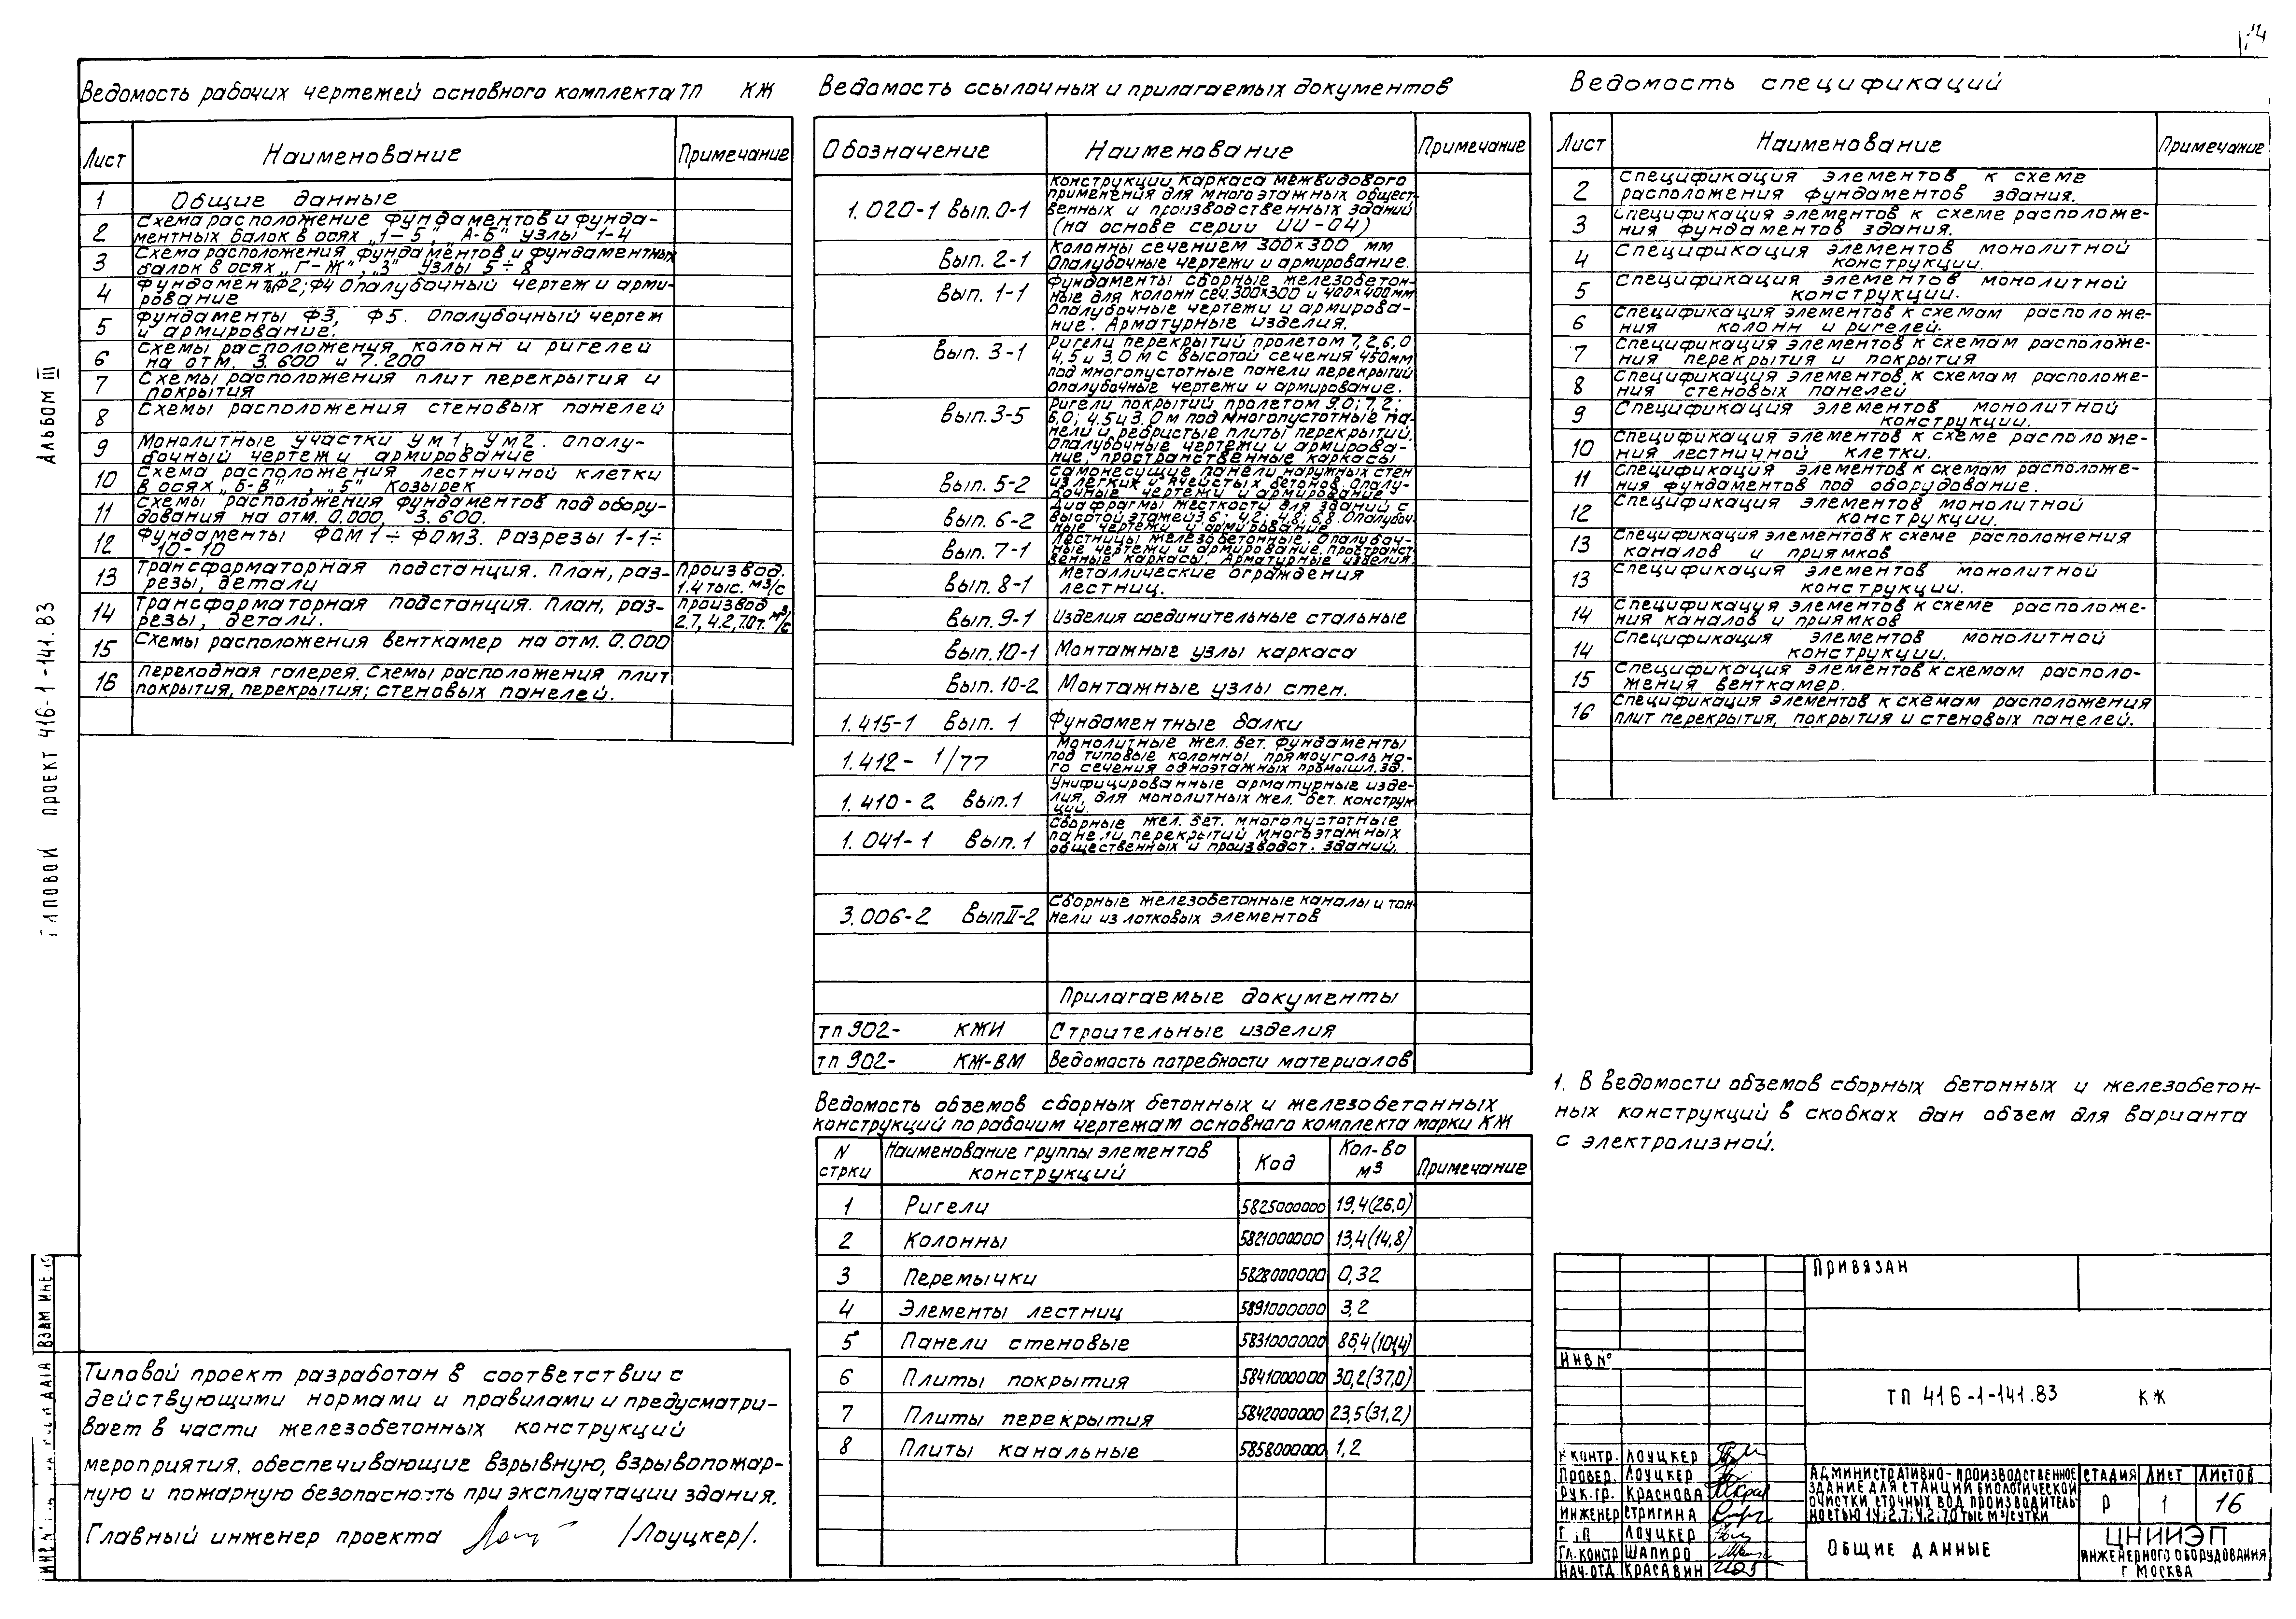 Ведомость рабочих чертежей основного комплекта ТП КЖ
Лист Наименование Примечание
1 Общие данные
2 Схема расположение фундаментов и фунда-
ментных балок в осях „1–5", „А-Б" узлы 1-4
3 Схема расположения фундаментов и фундаментных
балок в осях „Г-Ж", „3" узлы 5÷8
4 Фундаменты Ф2; Ф4 Опалубочный чертеж и арми-
рование
5 Фундаменты Ф3, Ф5. Опалубочный чертеж
и армирование.
6 Схемы расположения колонн и ригелей
на отм. 3.600 и 7.200
7 Схемы расположения плит перекрытия и
покрытия
8 Схемы расположения стеновых панелей
9 Монолитные участки Ум1, Ум2. Опалу-
бочный чертеж и армирование
10 Схема расположения лестничной клетки
в осях „Б-В", „5" Козырек
11 Схемы расположения фундаментов под обору-
дования на отм. 0.000, 3.600.
12 Фундаменты ФОМ1÷ФОМ3. Разрезы 1-1÷
10-10
13 Трансформаторная подстанция. План, раз- Производ.
резы, детали 1.4 тыс. м3/с
14 Трансформаторная подстанция. План, раз- Производ
резы, детали. 2.7, 4.2, 7.0т. м3/с
15 Схемы расположения венткамер на отм. 0.000
16 Переходная галерея. Схемы расположения плит
покрытия, перекрытия; стеновых панелей.
Ведомость ссылочных и прилагаемых документов
Обозначение Наименование Примечание
1.020-1 Вып.0-1 Конструкции каркаса межвидового
применения для многоэтажных общест-
венных и производственных зданий
(на основе серии ИИ-04)
Вып. 2-1 Колонны сечением 300×300 мм
Опалубочные чертежи и армирование.
Вып. 1-1 Фундаменты сборные железобетон-
ные для колонн сеч.300×300 и 400×400мм
Опалубочные чертежи и армирова-
ние. Арматурные изделия.
Вып. 3-1 Ригели перекрытий пролетом 7,2, 6,0
4,5 и 3,0 м с высотой сечения 450мм
под многопустотные панели перекрытий
Опалубочные чертежи и армирование.
Вып.3-5 Ригели покрытий пролетом 9.0; 7,2;
6,0; 4.5 и 3.0 м под многопустотные па-
нели и ребристые плиты перекрытий.
Опалубочные чертежи и армирова-
ние, пространственные каркасы
Вып. 5-2 Самонесущие панели наружных стен
из легких и ячеистых бетонов. Опалу-
бочные чертежи и армирование
Вып. 6-2 Диафрагмы жесткости для зданий с
высотой этажей 3.6; 4.2; 4.8; 6.8. Опалубоч-
ные чертежи и армирование
Вып. 7-1 Лестницы железобетонные. Опалубоч-
ные чертежи и армирование. Пространст-
венные каркасы. Арматурные изделия.
Вып. 8-1 Металлические ограждения
лестниц.
Вып.9-1 Изделия соединительные стальные
Вып.10-1 Монтажные узлы каркаса
Вып.10-2 Монтажные узлы стен.
1.415-1 Вып. 1 Фундаментные балки
1.412-1/77 Монолитные жел. бет. фундаменты
под типовые колонны прямоугольно-
го сечения одноэтажных промышл.зд.
1.410-2 Вып.1 Унифицированные арматурные изде-
лия, для монолитных жел. бет. конструк
ций.
1.041-1 Вып.1 Сборные жел. бет. многопустотные
панели перекрытий многоэтажных
общественных и производст. зданий.
3.006-2 Вып II-2 Сборные железобетонные каналы и тон-
нели из лотковых элементов
Прилагаемые документы
ТП 902- КЖИ Строительные изделия
ТП 902- КЖ-ВМ Ведомость потребности материалов
Ведомость объемов сборных бетонных и железобетонных
конструкций по рабочим чертежам основного комплекта марки КЖ
N строки Наименование группы элементов конструкций Код Кол-во м3 Примечание
1 Ригели 5825000000 19,4(26,0)
2 Колонны 5821000000 13,4(14,8)
3 Перемычки 5828000000 0,32
4 Элементы лестниц 5891000000 3,2
5 Панели стеновые 5831000000 86,4(101,4)
6 Плиты покрытия 5841000000 30,2(37,0)
7 Плиты перекрытия 5842000000 23,5(31,2)
8 Плиты канальные 5858000000 1,2
Ведомость спецификаций
Лист Наименование Примечание
2 Спецификация элементов к схеме
расположения фундаментов здания.
3 Спецификация элементов к схеме расположе-
ния фундаментов здания.
4 Спецификация элементов монолитной
конструкции.
5 Спецификация элементов монолитной
конструкции.
6 Спецификация элементов к схемам расположе-
ния колонн и ригелей.
7 Спецификация элементов к схемам расположе-
ния перекрытия и покрытия
8 Спецификация элементов к схемам расположе-
ния стеновых панелей
9 Спецификация элементов монолитной
конструкции.
10 Спецификация элементов к схеме расположе-
ния лестничной клетки.
11 Спецификация элементов к схемам расположе-
ния фундаментов под оборудование.
12 Спецификация элементов монолитной
конструкции.
13 Спецификация элементов к схеме расположения
каналов и приямков
13 Спецификация элементов монолитной
конструкции.
14 Спецификация элементов к схеме расположе-
ния каналов и приямков
14 Спецификация элементов монолитной
конструкции.
15 Спецификация элементов к схемам располо-
жения венткамер.
16 Спецификация элементов к схемам расположения
плит перекрытия, покрытия и стеновых панелей.
1. В ведомости объемов сборных бетонных и железобетон-
ных конструкций в скобках дан объем для варианта
с электролизной.
Типовой проект разработан в соответствии с
действующими нормами и правилами и предусматри-
вает в части железобетонных конструкций
мероприятия, обеспечивающие взрывную, взрывопожар-
ную и пожарную безопасность при эксплуатации здания.
Главный инженер проекта /Лоуцкер/.
ПРИВЯЗАН
ИНВ №
ТП 416-1-141.83 КЖ
Н КОНТР. ЛОУЦКЕР
ПРОВЕР. ЛОУЦКЕР
РУК.ГР. КРАСНОВА
ИНЖЕНЕР СТРИГИНА
ЛОУЦКЕР
ГЛ.КОНСТР ШАПИРО
НАЧ.ОТД. КРАСАВИН
АДМИНИСТРАТИВНО-ПРОИЗВОДСТВЕННОЕ
ЗДАНИЕ ДЛЯ СТАНЦИЙ БИОЛОГИЧЕСКОЙ
ОЧИСТКИ СТОЧНЫХ ВОД ПРОИЗВОДИТЕЛЬ-
НОСТЬЮ 1,4; 2,7; 4,2; 7,0 ТЫС М3/СУТКИ
СТАДИЯ ЛИСТ ЛИСТОВ
Р 1 16
ОБЩИЕ ДАННЫЕ
ЦНИИЭП
ИНЖЕНЕРНОГО ОБОРУДОВАНИЯ
Г МОСКВА
АЛЬБОМ III
ТИПОВОЙ ПРОЕКТ 416-1-141.83